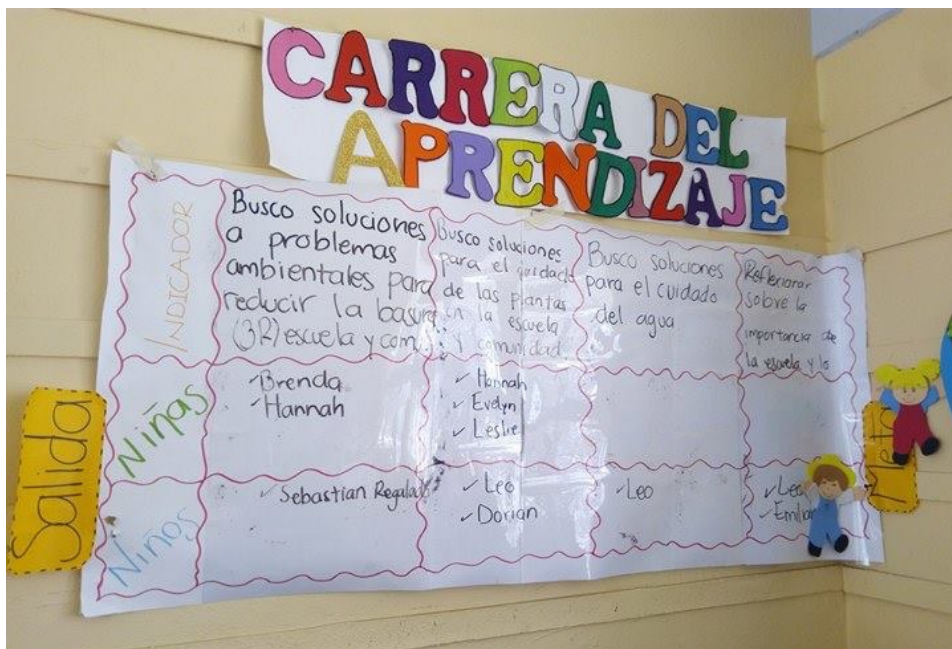 CARRERA DEL
APRENDIZAJE
INDICADOR
Busco soluciones
a problemas
ambientales para
reducir la basura
(3R) escuela y com
Busco soluciones
para el cuidado
de las plantas
en la escuela
y comunidad.
Busco soluciones
para el cuidado
del agua
Reflexionar
sobre la
importancia de
la escuela y lo
Niñas
Brenda
Hannah
Hannah
Evelyn
Leslie
Niños
Sebastian Regalado
Leo
Dorian
Leo
Leo
Salida
Meta